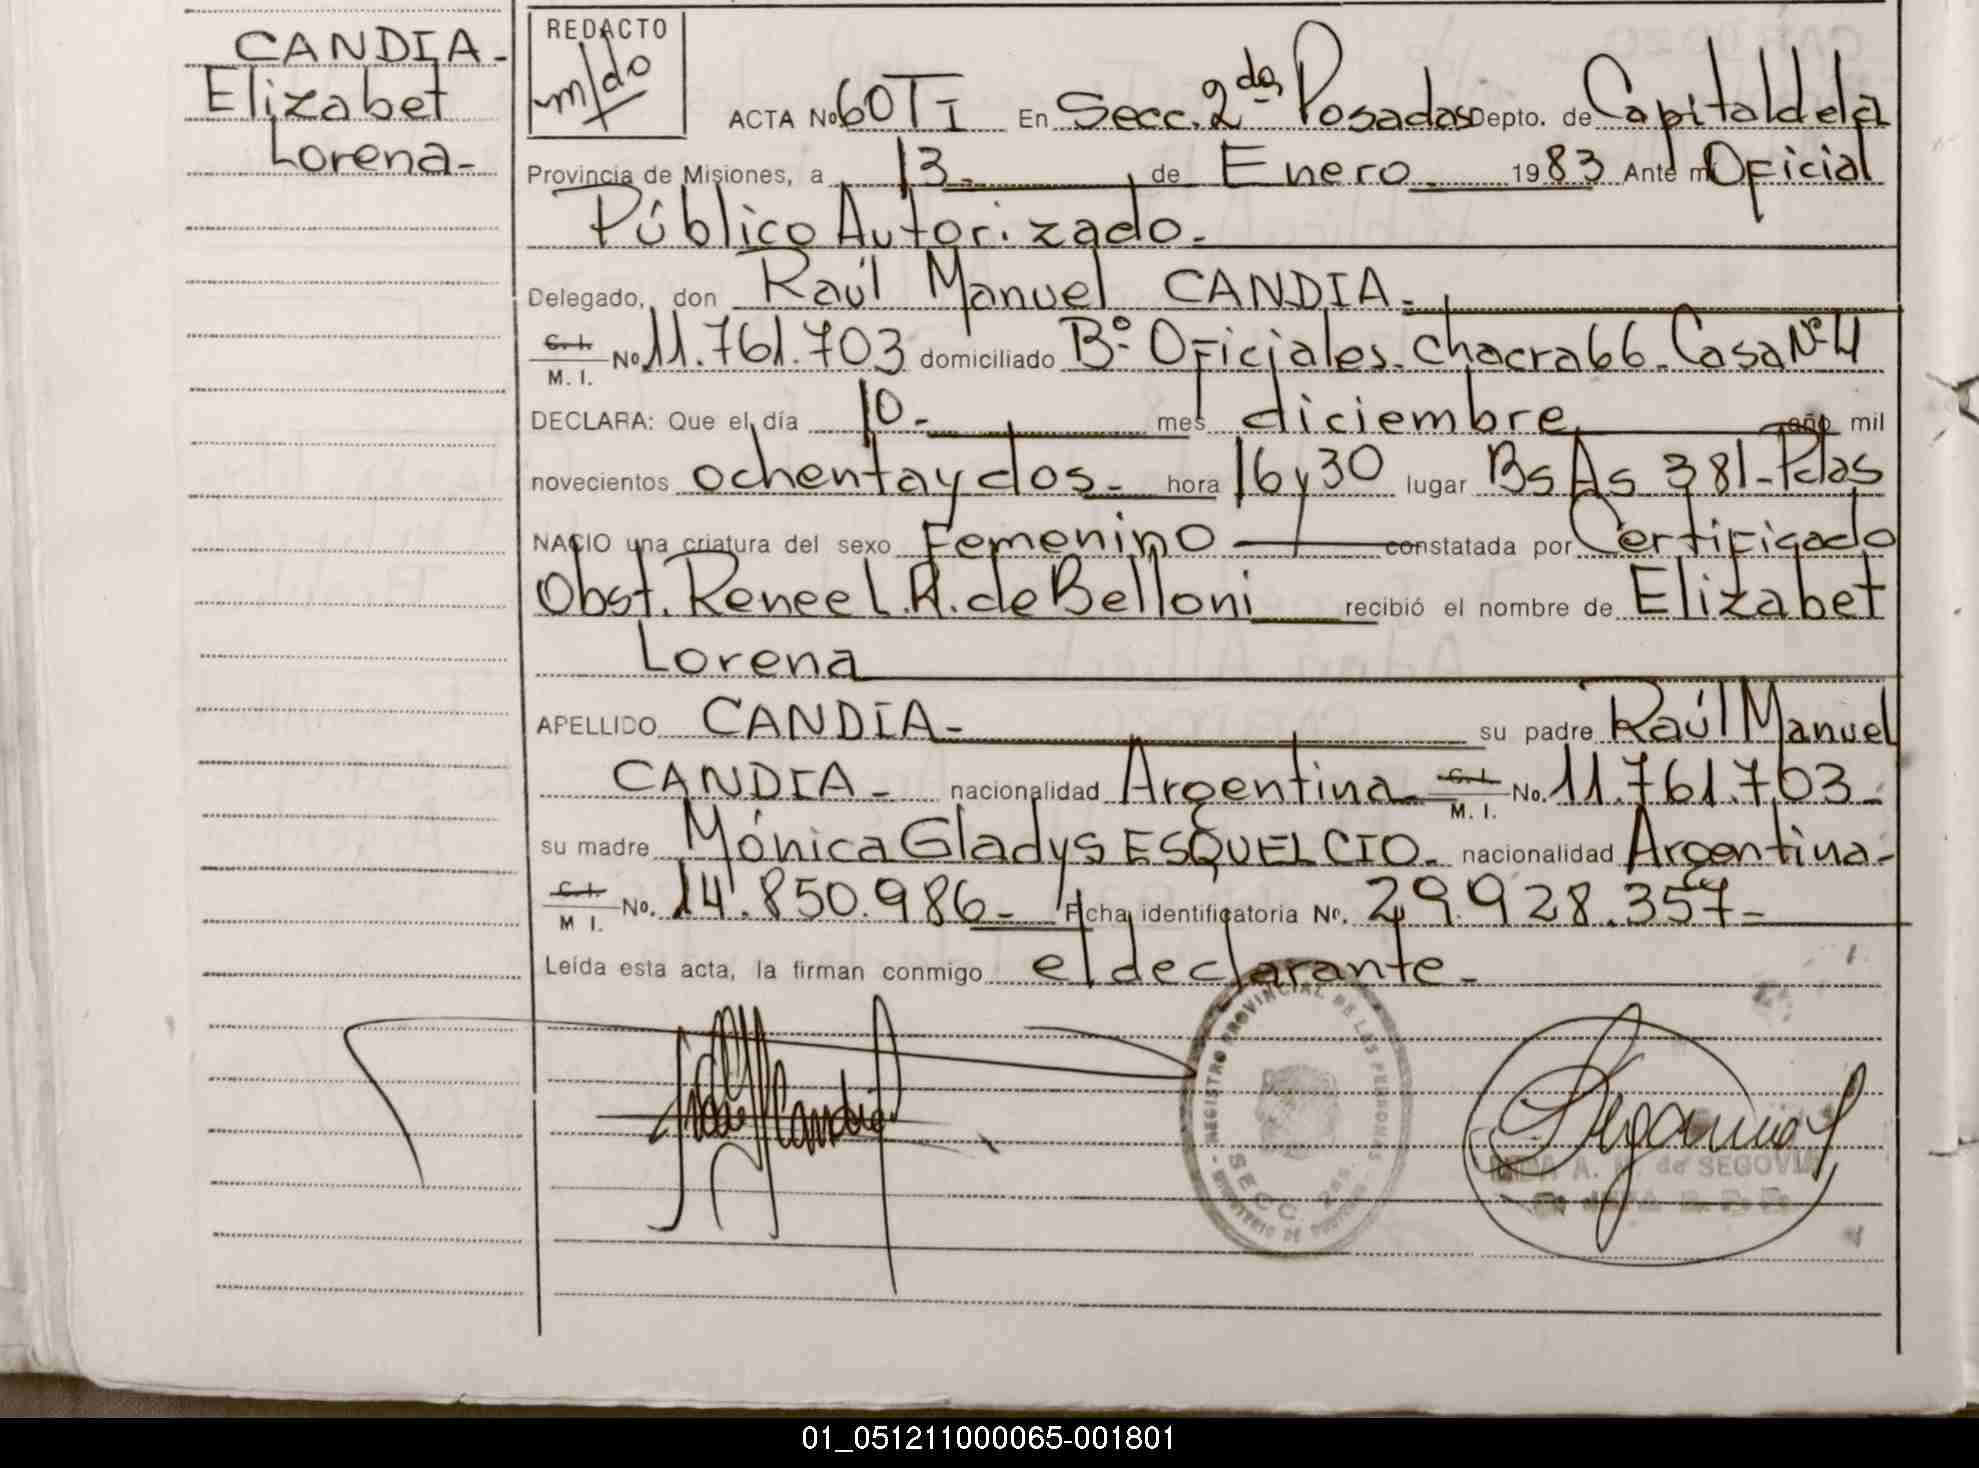 CANDIA-
Elizabet
Lorena-
REDACTO
m/do
ACTA No 60 TI En Secc. 2da Posadas Depto. de Capital de la
Provincia de Misiones, a 13- de Enero 1983 Ante mí Oficial
Público Autorizado.-
Delegado, don Raúl Manuel CANDIA.-
C. I. / M. I. No. 11.761.703 domiciliado Bº Oficiales-chacra 66-Casa Nº 4
DECLARA: Que el día 10- mes diciembre año mil
novecientos ochenta y dos- hora 16 y 30 lugar Bs As 381-Pdas
NACIO una criatura del sexo Femenino constatada por Certificado
Obst. Renee L.R. de Belloni recibió el nombre de Elizabet
Lorena
APELLIDO CANDIA- su padre Raúl Manuel
CANDIA- nacionalidad Argentina C. I. / M. I. No. 11.761.703-
su madre Mónica Gladys ESQUELCIO- nacionalidad Argentina-
C. I. / M I. No. 14.850.986- Ficha identificatoria Nº. 29.928.357-
Leída esta acta, la firman conmigo el declarante-
REGISTRO PROVINCIAL DE LAS PERSONAS
SECC. 2da
A. de SEGOVIA
01_051211000065-001801